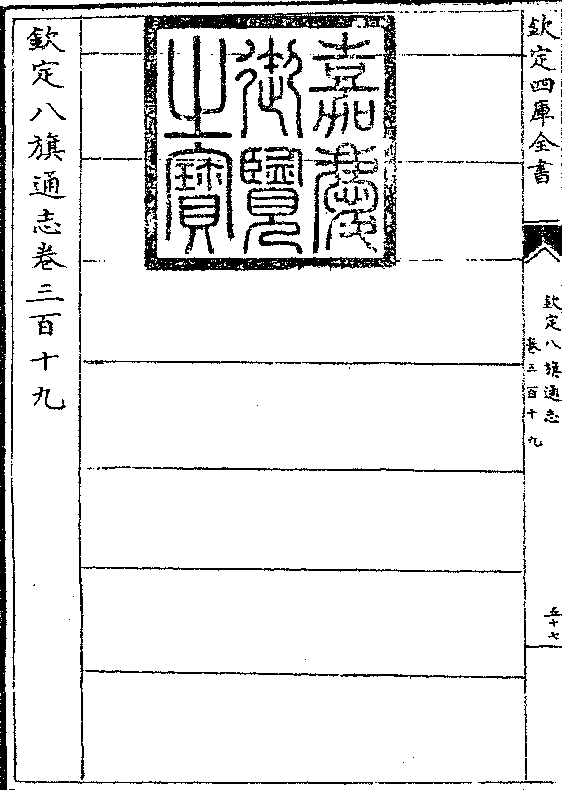 欽定四庫全書
欽定八旗通志
卷三百十九
五十七
嘉慶
御覽
之寶
欽定八旗通志卷三百十九